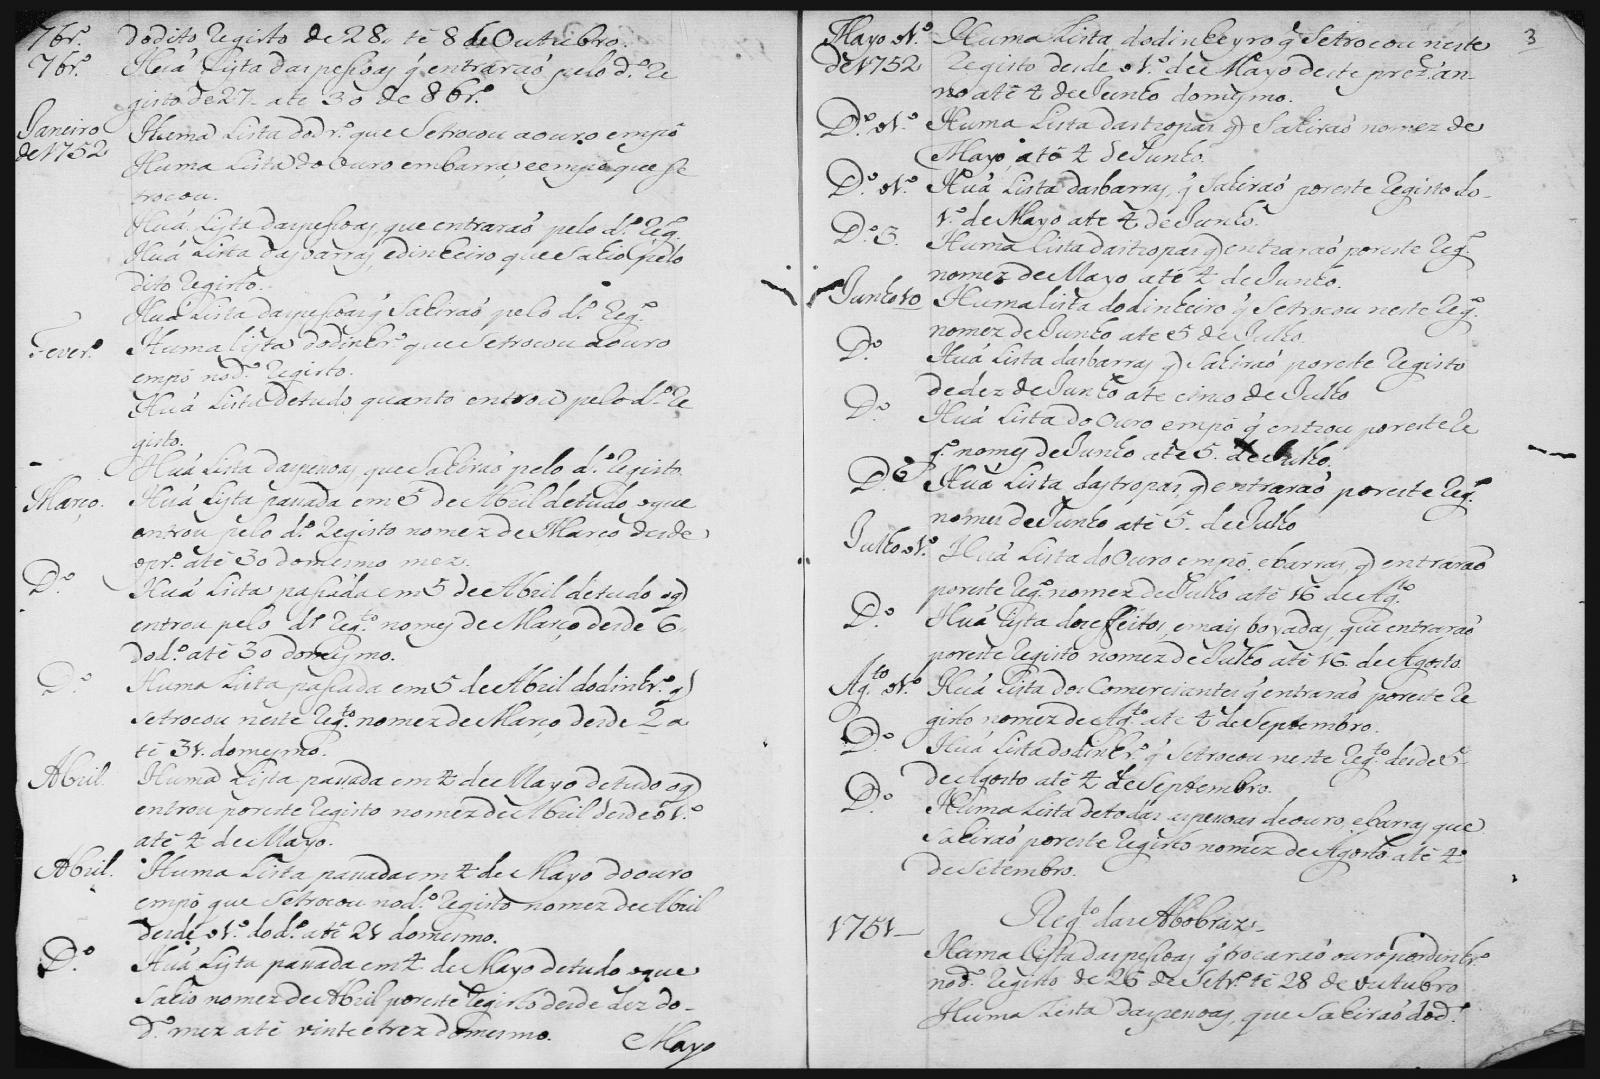 7br.º dodito Registo de 28. té 8 de Outubro.
7br.º Huá Lista das pessoas q̃ entraraó pelo d.º Re
gisto de 27. ate 30 de 8br.º
Janeiro de 1752 Huma Lista do dr.º que Setrocou aouro empó
Huma Lista do Ouro embarra, e empó que se
trocou.
Huá Lista daspessoas que entraraó pelo d.º Reg.º
Huá Lista das barras, edinheiro que Sahio pelo
dito Registo.
Huá Lista daspessoas q̃ Sahiraó pelo d.º Reg.º
Fever.º Huma lista dodinhr.º que Setrocou aouro
empó nod.º Registo.
Huá Lista detudo quanto entrou pelo d.º Re
gisto.
Huá Lista daspesoas que Sahiraó pelo d.º Registo.
Março. Huá Lista pasada em 5 de Abril detudo oque
entrou pelo d.º Registo nomez de Março desde
opr.º até 30 domesmo mez.
D.º Huá Lista passada em 5 de Abril detudo oq̃
entrou pelo d.º Reg.to nomes de Março desde 6
dod.º até 30 domesmo.
D.º Huma Lista passada em 5 de Abril dodinhr.º q̃
setrocou neste Reg.to nomez de Março desde 2 a
té 31. domesmo.
Abril. Huma Lista pasada em 4 de Mayo detudo oq̃
entrou poreste Registo nomez de Abril desde o 1.º
até 4 de Mayo.
Abril. Huma Lista pasada em 4 de Mayo do ouro
empó que Setrocou nod.º Registo nomez de Abril
desde o 1.º dod.º até 21 domesmo.
D.º Huá Lista pasada em 4 de Mayo detudo oque
Sahio nomez de Abril poreste Registo desde dez do
d.º mez até vinte e trez domesmo.
Mayo
3
Mayo o 1.º de 1752 Huma Lista, dodinheyro q̃ Setrocou neste
Registo desde o 1.º de Mayo deste prez.e an
no até 4 de Junho domesmo.
D.º o 1.º Huma Lista dastropas q̃ Sahiraó nomez de
Mayo até 4 de Junho.
D.º o 1.º Huá Lista dasbarras, q̃ Sahiraó poreste Registo do
1.º de Mayo ate 4 de Junho.
D.º 3. Huma Lista dastropas q̃ entraraó poreste Reg.º
nomez de Mayo até 4 de Junho.
Junho 10 Huma lista dodinheiro q̃ Setrocou neste Reg.º
nomez de Junho ate 5 de Julho.
D.º Huá Lista dasbarras q̃ Sahiraó poreste Registo
dedez de Junho ate cinco de Julho
D.º Huá Lista do Ouro empó q̃ entrou poreste Re
g.º nomes de Junho até 5. de Julho.
D.º Huá Lista dastropas, q̃ entraraó poreste Reg.º
nomes de Junho até 5. de Julho
Julho o 1.º Huá Lista do Ouro empó, ebarras, q̃ entraraó
poreste Reg.º nomez de Julho até 16 de Ag.to
D.º Huá Lista dos effeitos, emais boyadas, que entraraó
poreste Registo nomez de Julho até 16. de Agosto.
Ag.to o 1.º Huá Lista dos Comerciantes q̃ entraraó poreste Re
gisto nomez de Ag.to ate 4 de Septembro.
D.º Huá Lista do dinhr.º q̃ Setrocou neste Reg.to desde 5
de Agosto até 4 de Septembro.
D.º Huma Lista detodas aspesoas de ouro, ebarras que
Sahiraó poreste Registo nomez de Agosto até 4
de Setembro.
Reg.to das Abobras
1751 Huma Lista daspessoas q̃ trocaraó ouro pordinhr.º
nod.º Registo de 26 de Setr.º té 28 de outubro
Huma Lista daspesoas, que Sahiraó dod.º